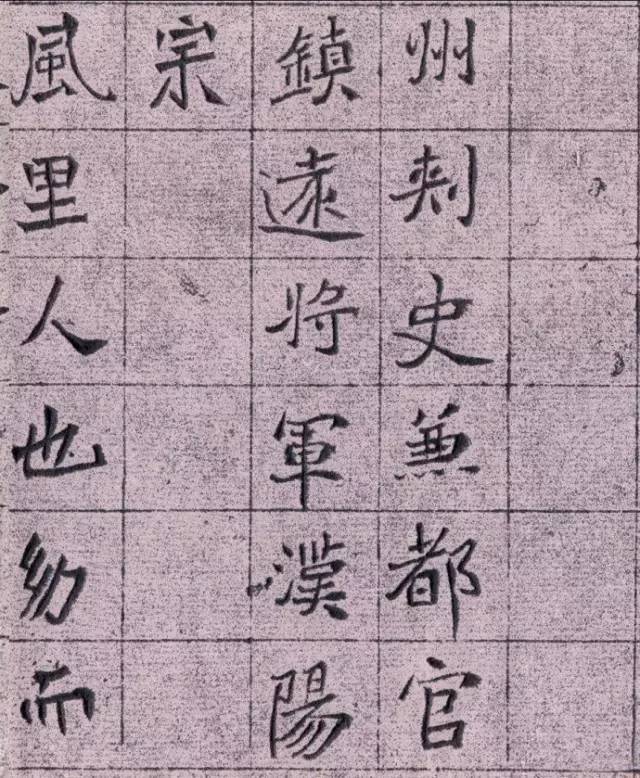 州刾史兼都官
鎮遠将軍漢陽
宗
風里人也幼而